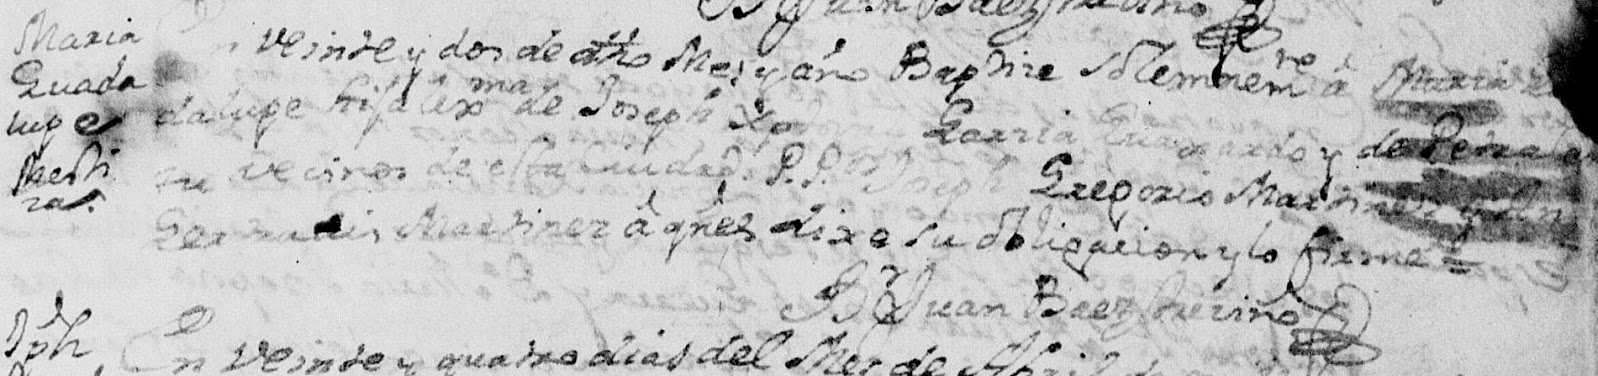 Br Juan Baez Trevino
Maria
Guada
lupe
Mesti
za.
En veinte y dos de dho Mes y año Baptize solemnem.te a Maria Gua
dalupe hija lexma de Joseph Xpl Garcia Guaxardo y de Petra
vecinos de esta Ciudad. P.P. Joseph Gregorio Martinez y
Gertrudis Martinez a qnes dixe su obligacion y lo firme =
Br Juan Baez Trevino
Jph
En veinte y quatro dias del Mes de Abril